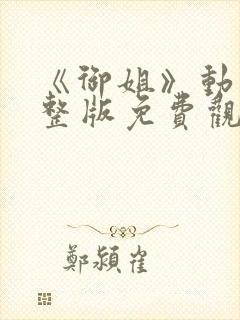 《御姐》動
整版免費觀
鄭潁崔